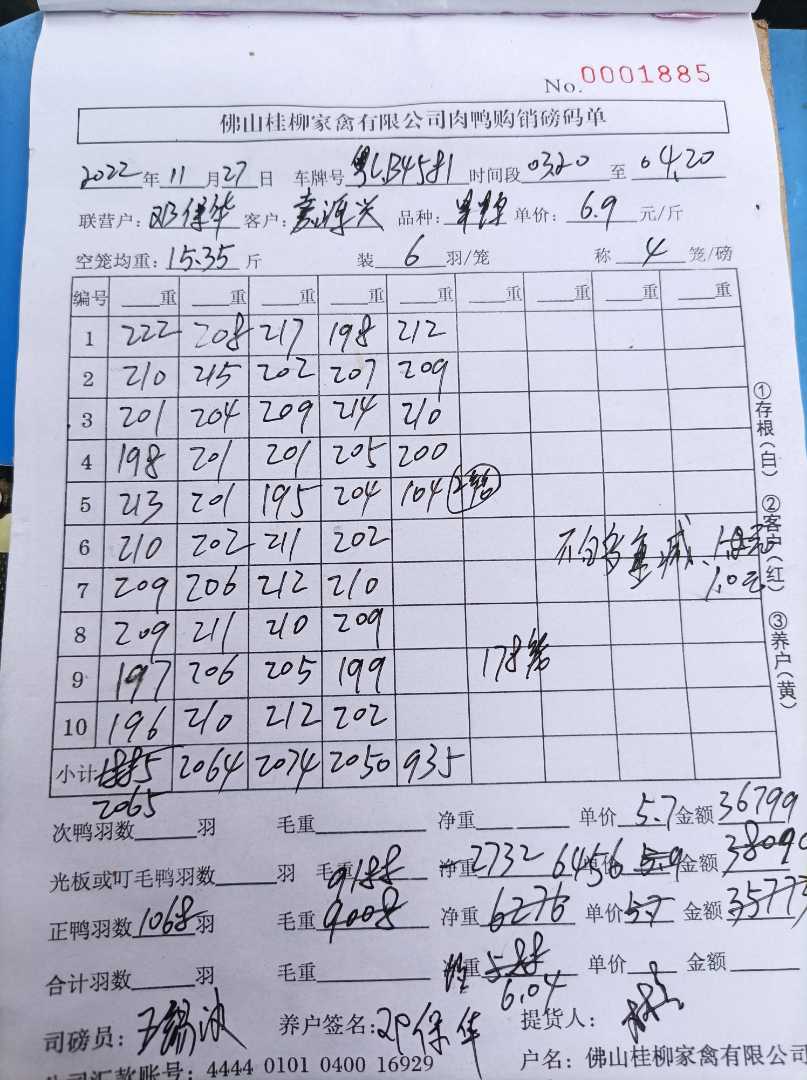 No. 0001885
佛山桂柳家禽有限公司肉鸭购销磅码单
2022年11月27日 车牌号粤LB4581时间段03.20至04.20
联营户:邓保华 客户: 源兴 品种: 单价:6.9元/斤
空笼均重:15.35斤 装6羽/笼 称4笼/磅
编号 重 重 重 重 重 重 重 重 重
1 222 208 217 198 212
2 210 215 202 207 209
3 201 204 209 214 210
4 198 201 201 205 200
5 213 201 195 204 104 2笼
6 210 202 211 202
7 209 206 212 210
8 209 211 210 209
9 197 206 205 199 178笼
10 196 210 212 202
小计 2064 2074 2050 935
2065
1.0元
①存根(白) ②客户(红) ③养户(黄)
次鸭羽数 羽 毛重 净重 单价5.7金额36799
光板或叮毛鸭羽数 羽 毛重9188 净重2732 6456单价5.9金额38090
正鸭羽数1068羽 毛重9008 净重6276 单价5.7 金额35773
合计羽数 羽 毛重 净重588 单价 金额
6.04
司磅员:王锡波 养户签名:邓保华 提货人:
公司汇款账号:4444 0101 0400 16929 户名:佛山桂柳家禽有限公司